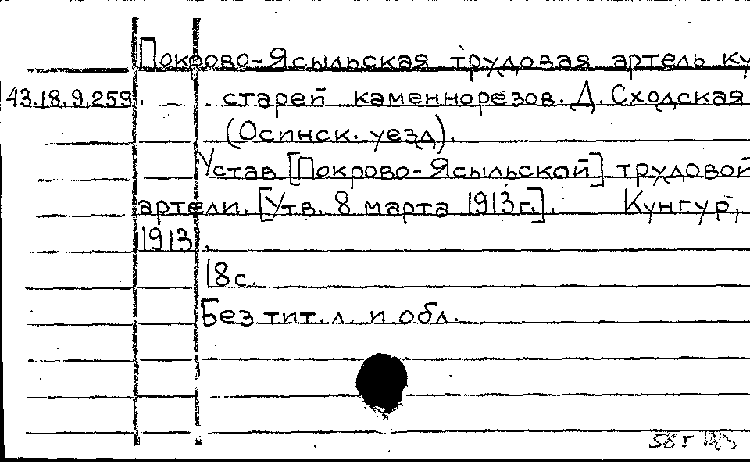 Покрово-Ясыльская трудовая артель ку
43.18.9.259. старей каменнорезов. Д. Сходская
(Осинск. уезд).
Устав [Покрово-Ясыльской] трудовой
артели. [Утв. 8 марта 1913 г.]. Кунгур,
1913.
18 с.
Без тит. л. и обл.
58 г